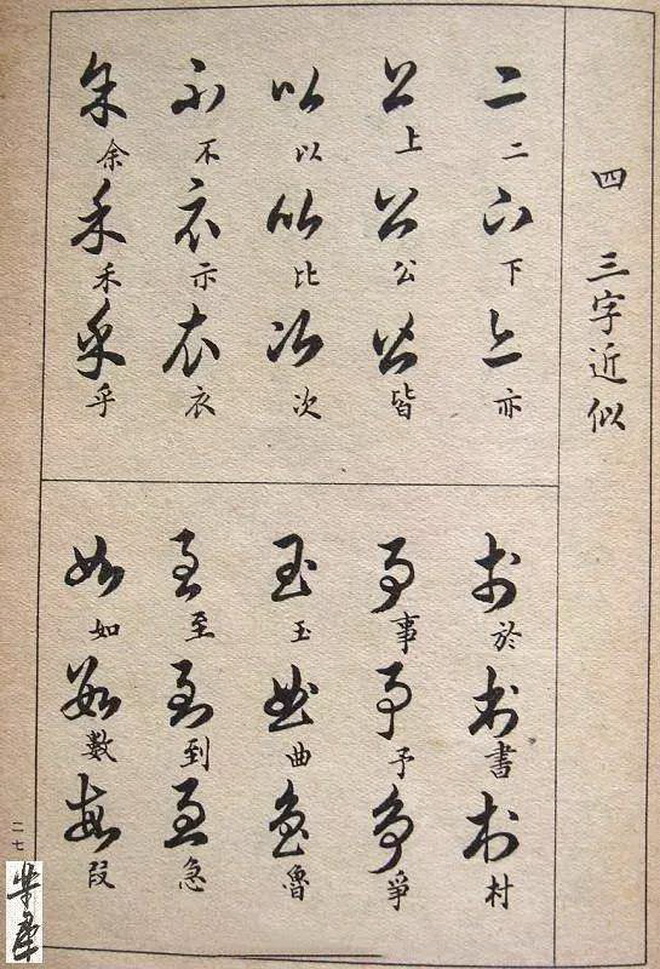 四 三字近似
二二下下亦亦
上上公公皆皆
以以比比次次
不不示示衣衣
余余禾禾乎乎
於於書書村村
事事予予爭爭
玉玉曲曲魯魯
至至到到急急
如如數數段段
二七